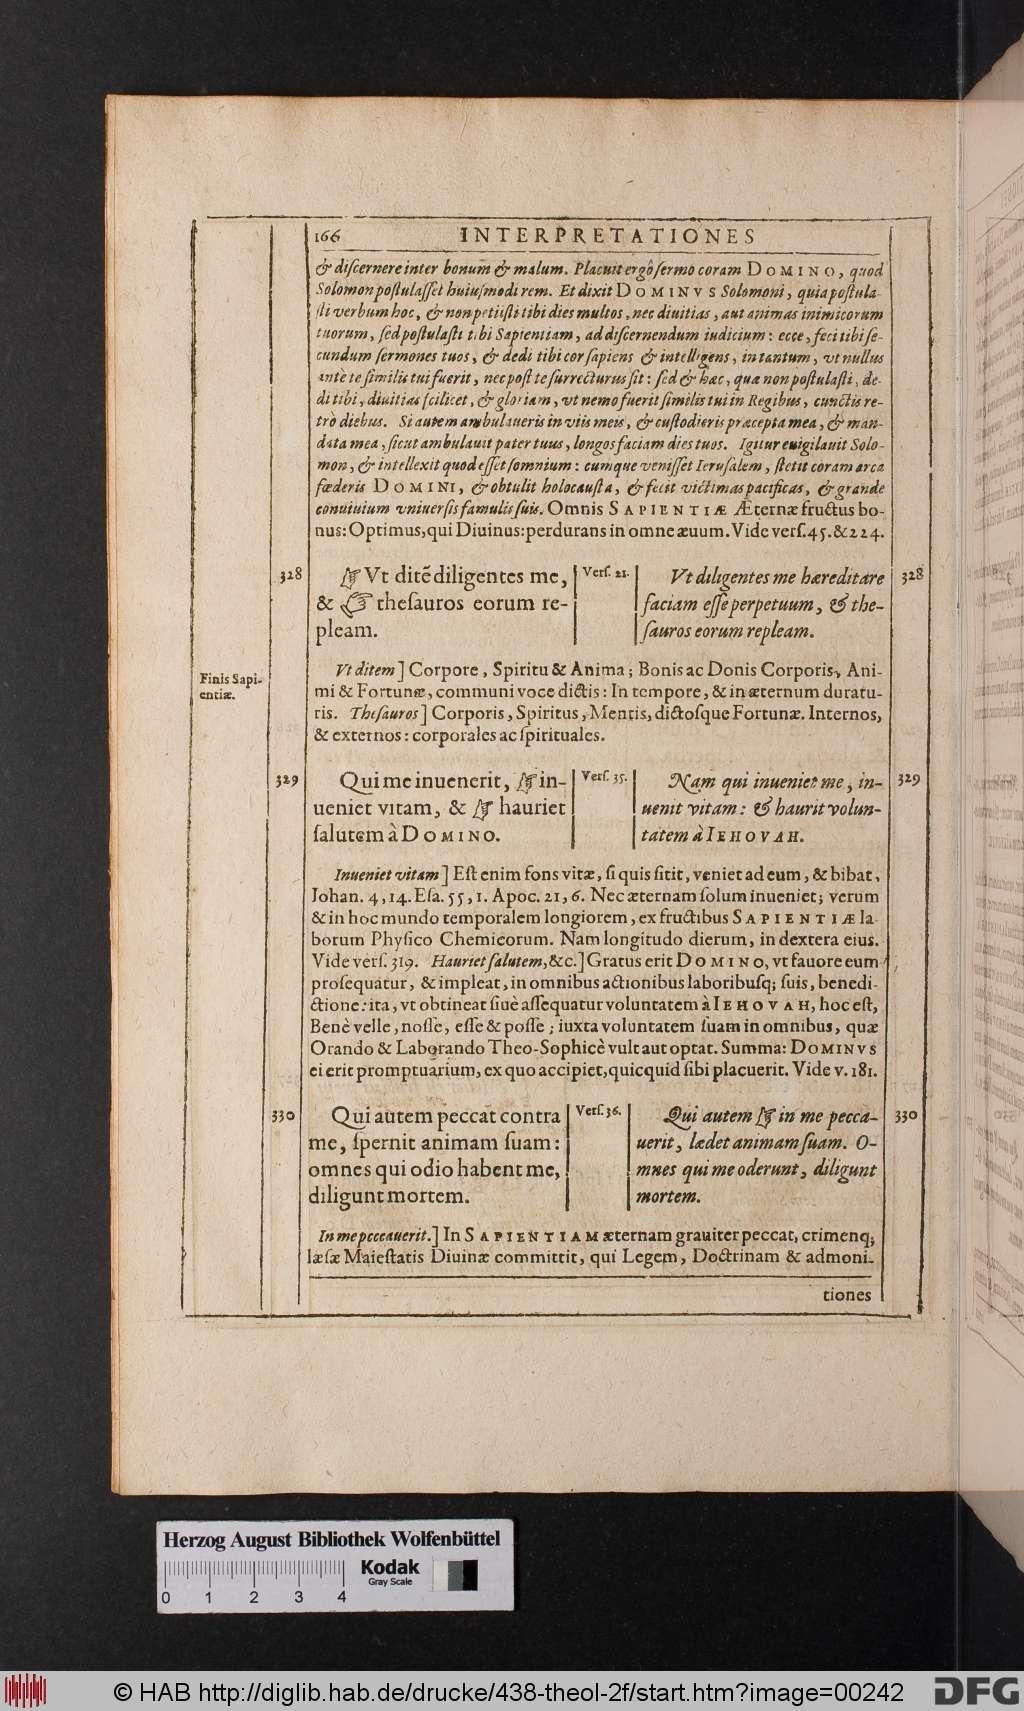 166 INTERPRETATIONES
& diſcernere inter bonum & malum. Placuit ergò ſermo coram DOMINO, quod
Solomon poſtulaſſet huiuſmodi rem. Et dixit DOMINVS Solomoni, quia poſtula-
ſti verbum hoc, & non petiiſti tibi dies multos, nec diuitias, aut animas inimicorum
tuorum, ſed poſtulaſti tibi Sapientiam, ad diſcernendum iudicium: ecce, feci tibi ſe-
cundum ſermones tuos, & dedi tibi cor ſapiens & intelligens, in tantum, vt nullus
antè te ſimilis tui fuerit, nec poſt te ſurrecturus ſit: ſed & hæc, quæ non poſtulaſti, de-
di tibi, diuitias ſcilicet, & gloriam, vt nemo fuerit ſimilis tui in Regibus, cunctis re-
trò diebus. Si autem ambulaueris in viis meis, & cuſtodieris præcepta mea, & man-
data mea, ſicut ambulauit pater tuus, longos faciam dies tuos. Igitur euigilauit Solo-
mon, & intellexit quod eſſet ſomnium: cumque veniſſet Ieruſalem, ſtetit coram arca
fœderis DOMINI, & obtulit holocauſta, & fecit victimas pacificas, & grande
conuiuium vniuerſis famulis ſuis. Omnis SAPIENTIÆ Æternæ fructus bo-
nus: Optimus, qui Diuinus: perdurans in omne æuum. Vide verſ. 45. & 224.
328 ☞ Vt ditẽ diligentes me,
& ☞ theſauros eorum re-
pleam.
Verſ. 21.
Vt diligentes me hæreditare 328
faciam eſſe perpetuum, & the-
ſauros eorum repleam.
Finis Sapi-
entiæ.
Vt ditem] Corpore, Spiritu & Anima; Bonis ac Donis Corporis, Ani-
mi & Fortunæ, communi voce dictis: In tempore, & in æternum duratu-
ris. Theſauros] Corporis, Spiritus, Mentis, dictoſque Fortunæ. Internos,
& externos: corporales ac ſpirituales.
329 Qui me inuenerit, ☞ in-
ueniet vitam, & ☞ hauriet
ſalutem à DOMINO.
Verſ. 35.
Nam qui inueniet me, in- 329
uenit vitam: & haurit volun-
tatem à IEHOVAH.
Inueniet vitam] Eſt enim fons vitæ, ſi quis ſitit, veniet ad eum, & bibat,
Johan. 4, 14. Eſa. 55, 1. Apoc. 21, 6. Nec æternam ſolum inueniet; verum
& in hoc mundo temporalem longiorem, ex fructibus SAPIENTIÆ la-
borum Phyſico Chemicorum. Nam longitudo dierum, in dextera eius.
Vide verſ. 319. Hauriet ſalutem, &c.] Gratus erit DOMINO, vt fauore eum
proſequatur, & impleat, in omnibus actionibus laboribuſq; ſuis, benedi-
ctione: ita, vt obtineat ſiuè aſſequatur voluntatem à IEHOVAH, hoc eſt,
Benè velle, noſſe, eſſe & poſſe; iuxta voluntatem ſuam in omnibus, quæ
Orando & Laborando Theo-Sophicè vult aut optat. Summa: DOMINVS
ei erit promptuarium, ex quo accipiet, quicquid ſibi placuerit. Vide v. 181.
330 Qui autem peccat contra
me, ſpernit animam ſuam:
omnes qui odio habent me,
diligunt mortem.
Verſ. 36.
Qui autem ☞ in me pecca- 330
uerit, lædet animam ſuam. O-
mnes qui me oderunt, diligunt
mortem.
In me peccauerit.] In SAPIENTIAM æternam grauiter peccat, crimenq;
læſæ Maieſtatis Diuinæ committit, qui Legem, Doctrinam & admoni-
tiones
Herzog August Bibliothek Wolfenbüttel
0 1 2 3 4
Kodak
Gray Scale
© HAB http://diglib.hab.de/drucke/438-theol-2f/start.htm?image=00242
DFG